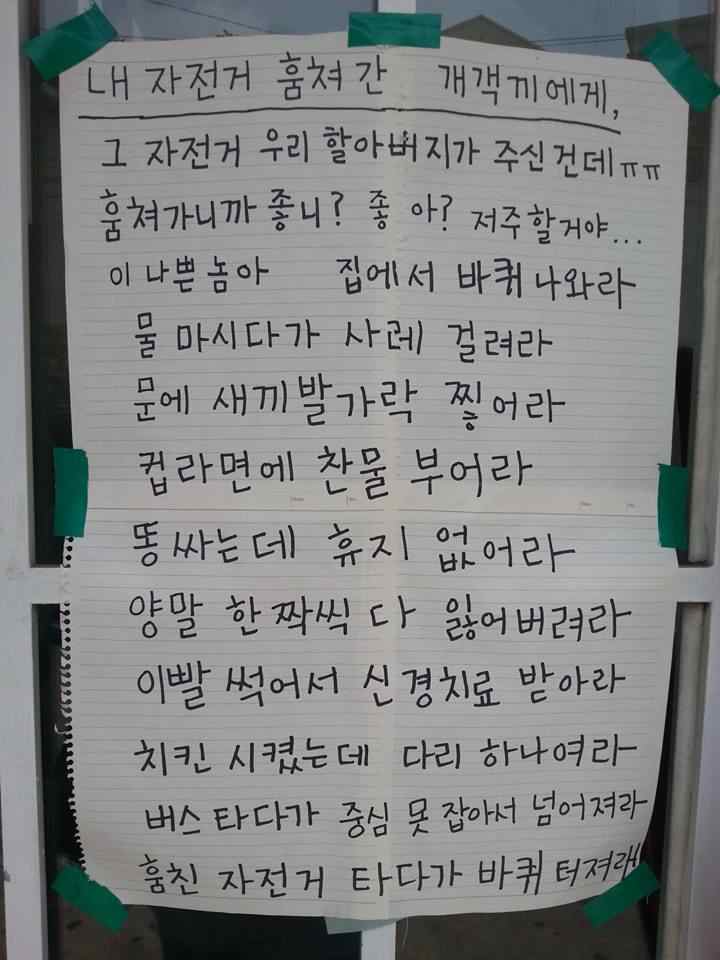 내 자전거 훔쳐간 개객끼에게,
그 자전거 우리 할아버지가 주신건데ㅠㅠ
훔쳐가니까 좋니? 좋아? 저주할거야...
이 나쁜놈아 집에서 바퀴 나와라
물 마시다가 사레 걸려라
문에 새끼발가락 찧어라
컵라면에 찬물 부어라
똥 싸는데 휴지 없어라
양말 한짝씩 다 잃어버려라
이빨 썩어서 신경치료 받아라
치킨 시켰는데 다리 하나여라
버스 타다가 중심 못 잡아서 넘어져라
훔친 자전거 타다가 바퀴 터져라!